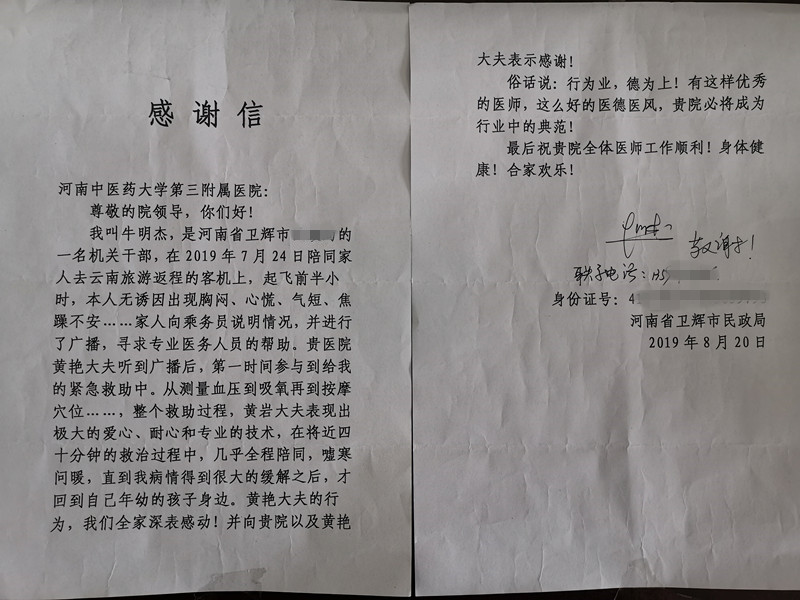 感谢信
河南中医药大学第三附属医院：
尊敬的院领导，你们好！
我叫牛明杰，是河南省卫辉市的
一名机关干部，在2019年7月24日陪同家
人去云南旅游返程的客机上，起飞前半小
时，本人无诱因出现胸闷、心慌、气短、焦
躁不安……家人向乘务员说明情况，并进行
了广播，寻求专业医务人员的帮助。贵医院
黄艳大夫听到广播后，第一时间参与到给我
的紧急救助中。从测量血压到吸氧再到按摩
穴位……，整个救助过程，黄岩大夫表现出
极大的爱心、耐心和专业的技术，在将近四
十分钟的救治过程中，几乎全程陪同，嘘寒
问暖，直到我病情得到很大的缓解之后，才
回到自己年幼的孩子身边。黄艳大夫的行
为，我们全家深表感动！并向贵院以及黄艳
大夫表示感谢！
俗话说：行为业，德为上！有这样优秀
的医师，这么好的医德医风，贵院必将成为
行业中的典范！
最后祝贵院全体医师工作顺利！身体健
康！合家欢乐！
联系电话：
身份证号：4
河南省卫辉市民政局
2019年8月20日